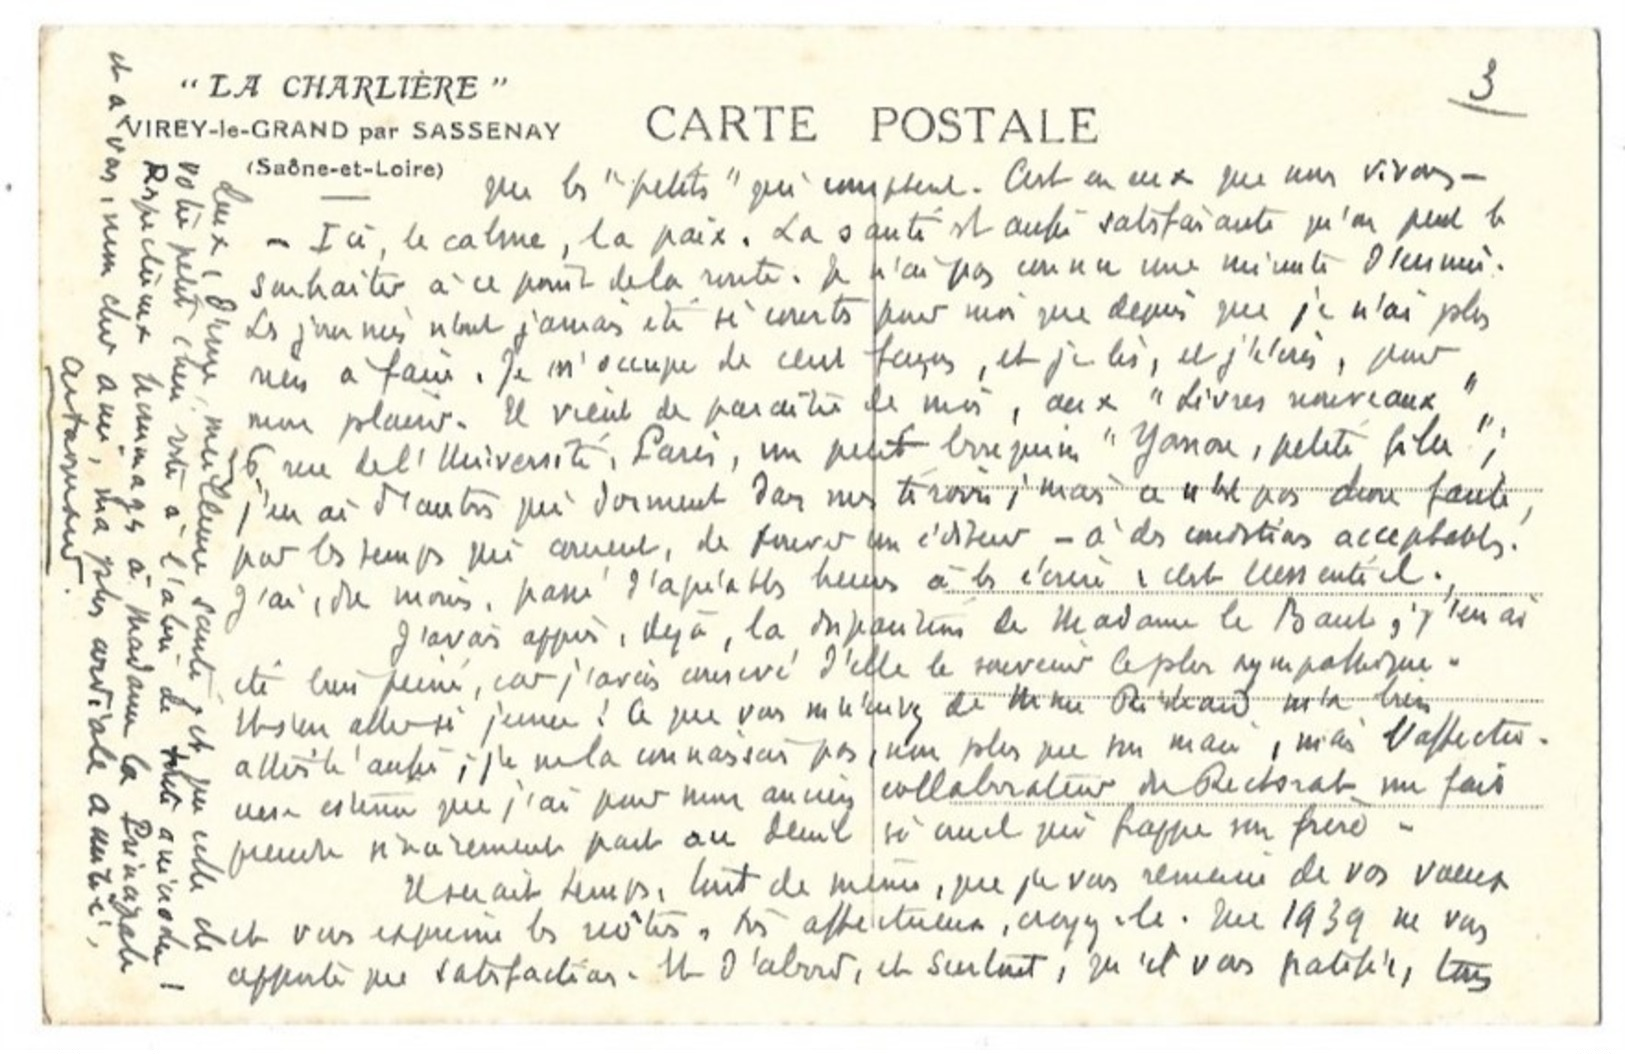 "LA CHARLIÈRE"
VIREY-le-GRAND par SASSENAY
(Saône-et-Loire)
CARTE POSTALE
3
que les "petits" qui comptent. C'est en eux que nous vivons —
— Ici, le calme, la paix. La santé est aussi satisfaisante qu'on peut le
souhaiter à ce point de la route. Je n'ai pas connu une minute d'ennui.
Les journées n'ont jamais été si courtes pour moi que depuis que je n'ai plus
rien à faire. Je m'occupe de cent façons, et je lis, et j'écris, pour
mon plaisir. Il vient de paraître de moi, aux "Livres nouveaux",
6 rue de l'Université, Paris, un petit bouquin "Yanou, petite fille";
j'en ai d'autres qui dorment dans mes tiroirs; mais ce n'est pas chose facile,
par les temps qui courent, de trouver un éditeur — à des conditions acceptables.
J'ai, du moins, passé d'agréables heures à les écrire : c'est l'essentiel.
J'avais appris, déjà, la disparition de Madame le Baut; j'en ai
été bien peiné, car j'avais conservé d'elle le souvenir le plus sympathique.
Et s'en aller si jeune! Ce que vous m'écrivez de Mme m'a bien
attristé aussi; je ne la connaissais pas, non plus que son mari, mais l'affectu-
euse estime que j'ai pour mon ancien collaborateur du Rectorat me fait
prendre sincèrement part au deuil si cruel qui frappe son frère —
Il serait temps, tout de même, que je vous remercie de vos voeux
et vous exprime les nôtres, très affectueux, croyez-le. Que 1939 ne vous
apporte que satisfactions. Et d'abord, et surtout, qu'il vous gratifie, tous
deux, d'une meilleure santé; et que celle de
votre petit chéri reste à l'abri de toute anicroche!
Respectueux hommages à Madame la Principale
et à vous, mon cher ami, ma plus cordiale amitié,